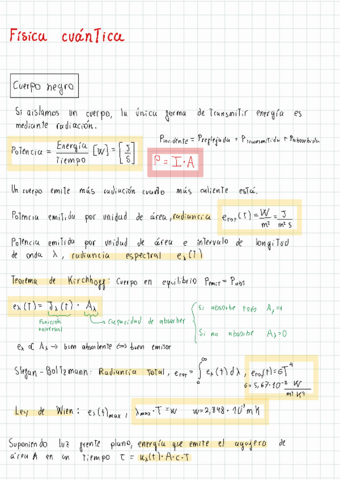 Física cuántica
Cuerpo negro
Si aislamos un cuerpo, la única forma de transmitir energía es
mediante radiación.
Pincidente = Preflejada + Ptransmitida + Pabsorbida
Potencia = Energía / Tiempo [W] = [J/s]
P = I · A
Un cuerpo emite más radiación cuanto más caliente está.
Potencia emitida por unidad de área, radiancia e_TOT(T) = W/m² = J/m² s
Potencia emitida por unidad de área e intervalo de longitud
de onda λ, radiancia espectral e_λ(T)
Teorema de Kirchhoff: Cuerpo en equilibrio Pemit = Pabs
e_λ(T) = J_λ(T) · A_λ
Función universal
Capacidad de absorber
Si absorbe todo A_λ=1
Si no absorbe A_λ=0
e_λ ∝ A_λ → buen absorbente ⟺ buen emisor
Stefan-Boltzmann: Radiancia Total, e_TOT = ∫₀^∞ e_λ(T) dλ, e_TOT(T) = σT⁴
σ = 5,67·10⁻⁸ W/m² K⁴
Ley de Wien: e_λ(T)max, λmax · T = w w = 2,898 · 10⁻³ m K
Suponiendo luz frente plano, energía que emite el agujero de
área A en un tiempo τ = u_λ(T)·A·c·τ